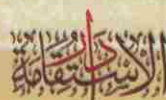 دار الاستقامة